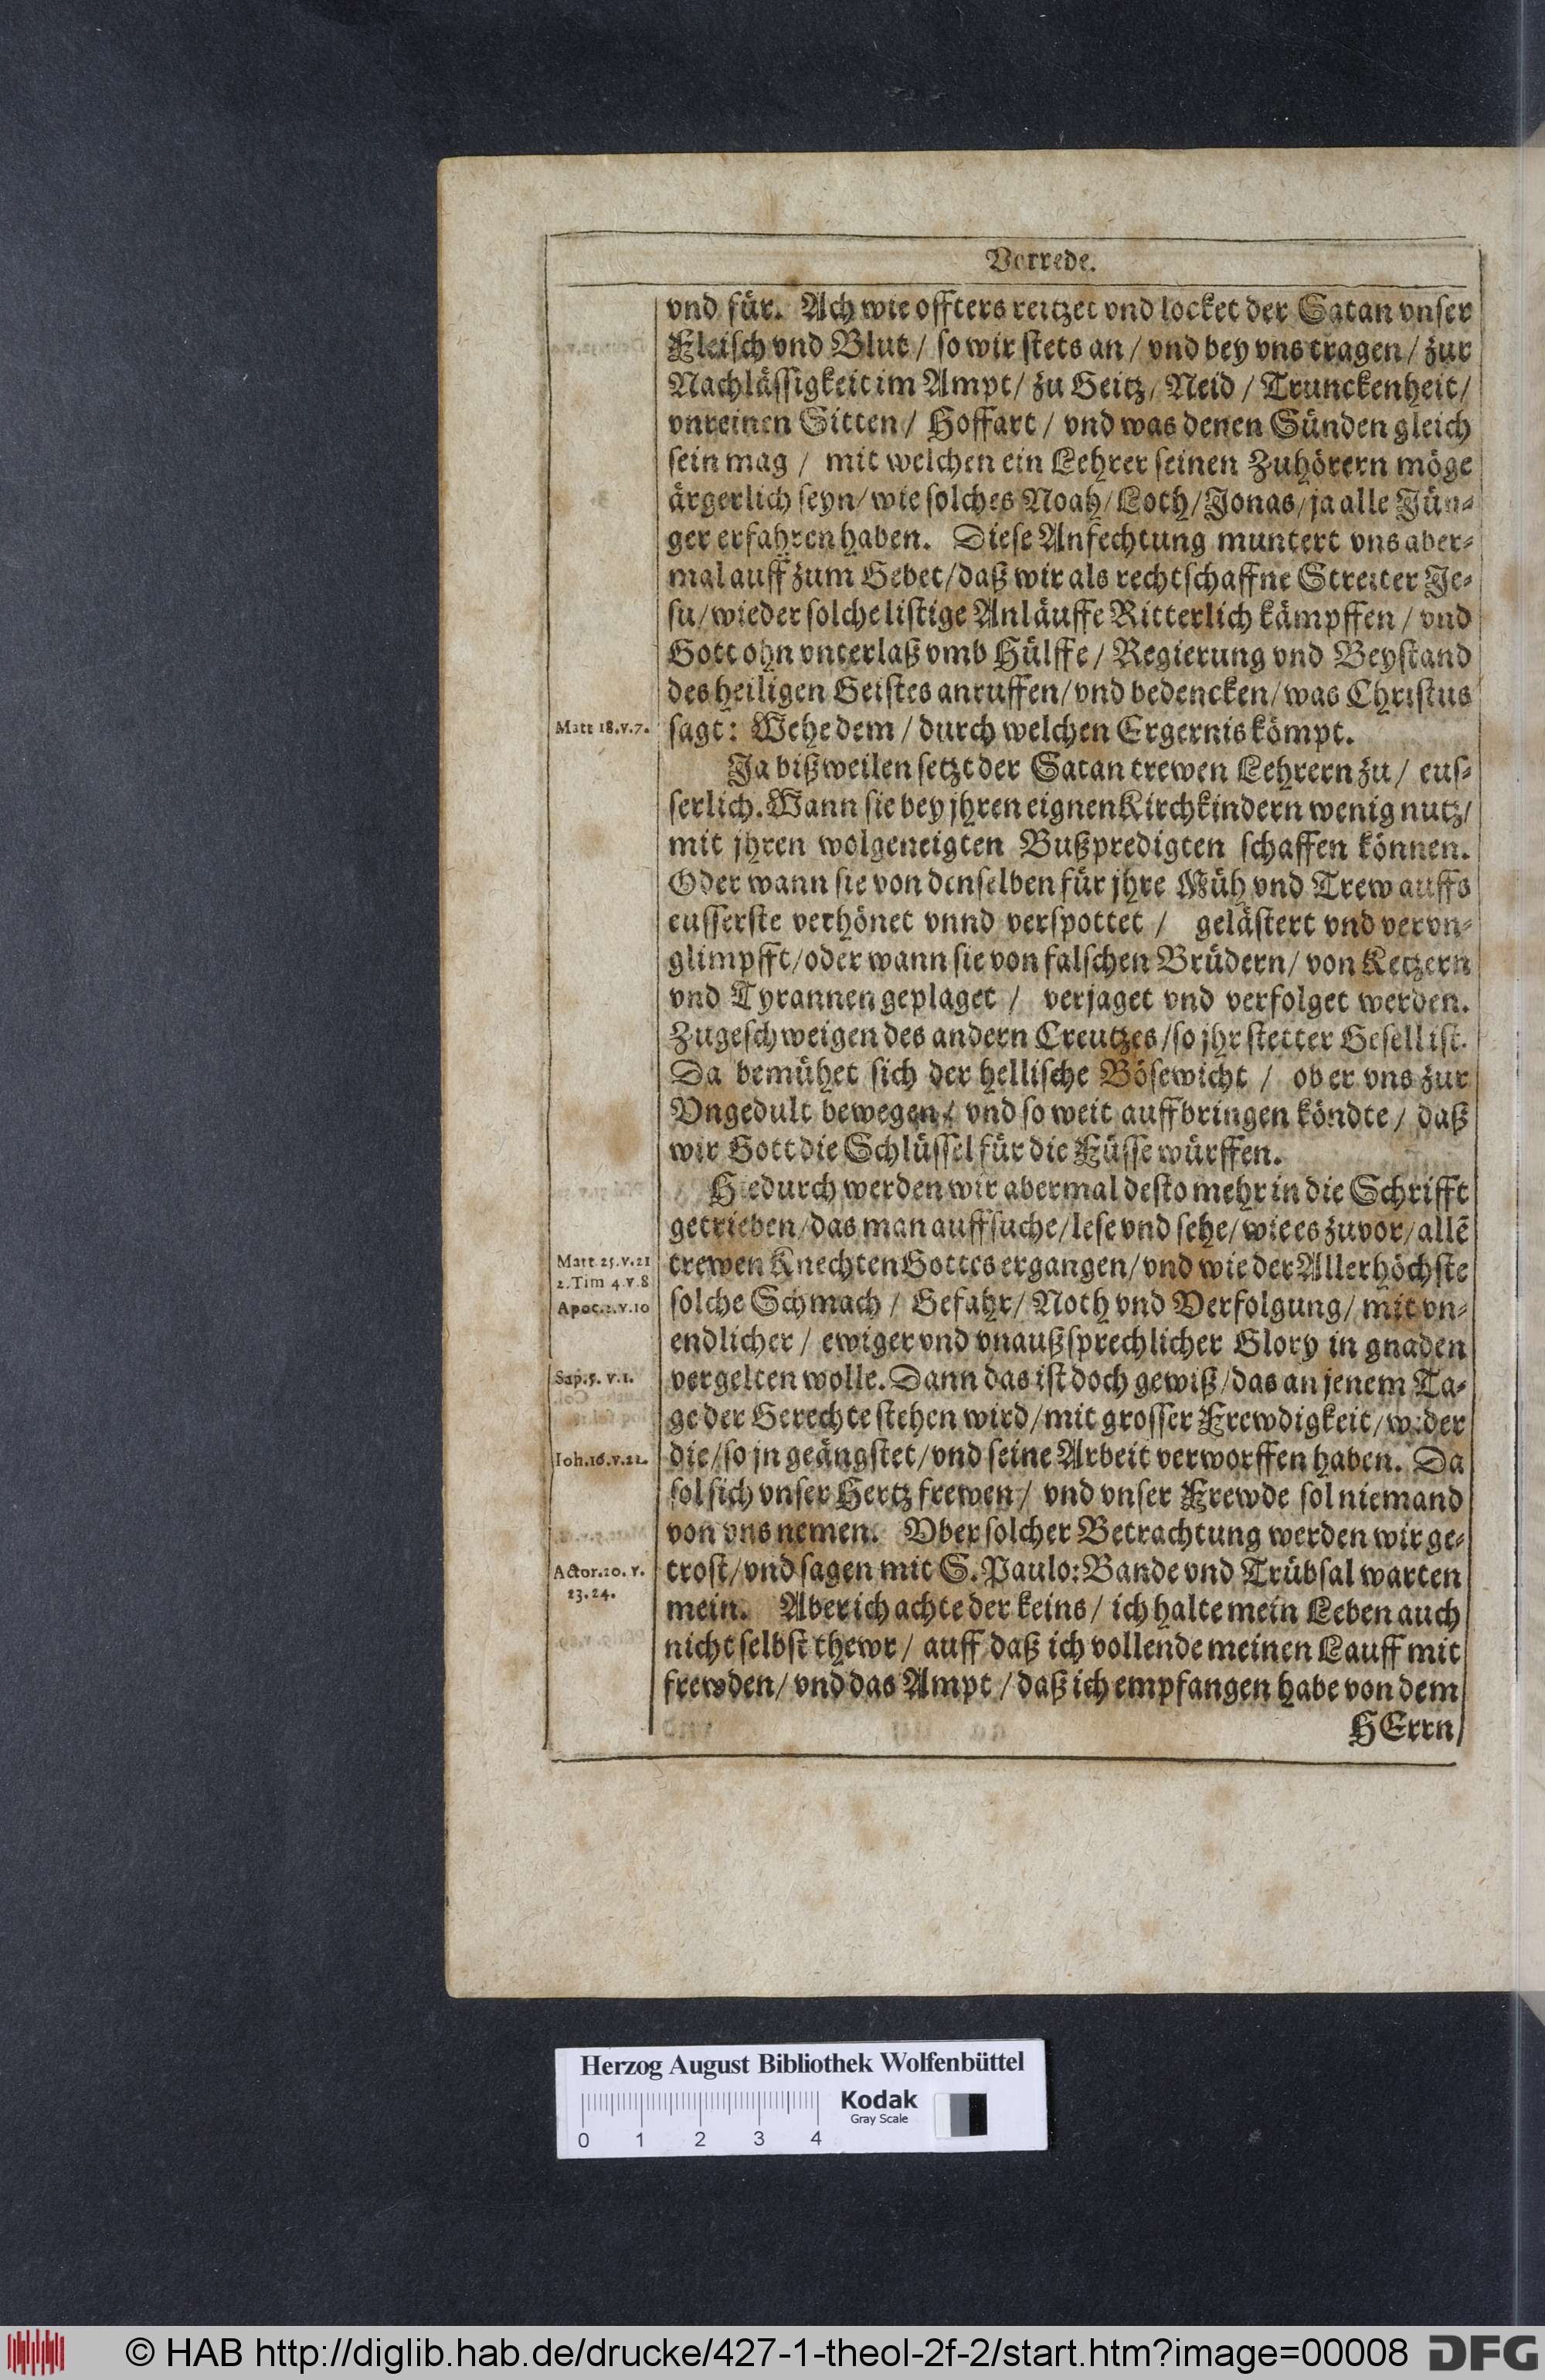 Vorrede.
vnd für. Ach wie offters reitzet vnd locket der Satan vnser
Fleisch vnd Blut / so wir stets an / vnd bey vns tragen / zur
Nachlässigkeit im Ampt / zu Geitz / Neid / Trunckenheit /
vnreinen Sitten / Hoffart / vnd was denen Sünden gleich
sein mag / mit welchen ein Lehrer seinen Zuhörern möge
ärgerlich seyn / wie solches Noah / Loth / Jonas / ja alle Jün⸗
ger erfahren haben. Diese Anfechtung muntert vns aber⸗
mal auff zum Gebet / daß wir als rechtschaffne Streiter Je⸗
su / wieder solche listige Anläuffe Ritterlich kämpffen / vnd
Gott ohn vnterlaß vmb Hülffe / Regierung vnd Beystand
des heiligen Geistes anruffen / vnd bedencken / was Christus
Matt 18.v.7.
sagt: Wehe dem / durch welchen Ergernis kömpt.
Ja bißweilen setzt der Satan trewen Lehrern zu / eus⸗
serlich. Wann sie bey jhren eignen Kirchkindern wenig nutz /
mit jhren wolgeneigten Bußpredigten schaffen können.
Oder wann sie von denselben für jhre Müh vnd Trew auffs
eusserste verhönet vnnd verspottet / gelästert vnd vervn⸗
glimpfft / oder wann sie von falschen Brüdern / von Ketzern
vnd Tyrannen geplaget / verjaget vnd verfolget werden.
Zugeschweigen des andern Creutzes / so jhr stetter Gesell ist.
Da bemühet sich der hellische Bösewicht / ob er vns zur
Vngedult bewegen / vnd so weit auffbringen köndte / daß
wir Gott die Schlüssel für die Füsse würffen.
Hiedurch werden wir abermal desto mehr in die Schrifft
getrieben / das man auffsuche / lese vnd sehe / wie es zuvor / allẽ
Matt. 25.v.21
trewen Knechten Gottes ergangen / vnd wie der Allerhöchste
2.Tim 4.v.8
Apoc.2.v.10
solche Schmach / Gefahr / Noth vnd Verfolgung / mit vn⸗
endlicher / ewiger vnd vnaußsprechlicher Glory in gnaden
Sap.5. v.1.
vergelten wolle. Dann das ist doch gewiß / das an jenem Ta⸗
ge der Gerechte stehen wird / mit grosser Frewdigkeit / wider
Ioh.16.v.22.
die / so jn geängstet / vnd seine Arbeit verworffen haben. Da
sol sich vnser Hertz frewen / vnd vnser Frewde sol niemand
von vns nemen. Vber solcher Betrachtung werden wir ge⸗
Actor.20. v.
23.24.
trost / vnd sagen mit S. Paulo: Bande vnd Trübsal warten
mein. Aber ich achte der keins / ich halte mein Leben auch
nicht selbst thewr / auff daß ich vollende meinen Lauff mit
frewden / vnd das Ampt / daß ich empfangen habe von dem
HErrn /
Herzog August Bibliothek Wolfenbüttel
Kodak
Gray Scale
0 1 2 3 4
© HAB http://diglib.hab.de/drucke/427-1-theol-2f-2/start.htm?image=00008
DFG